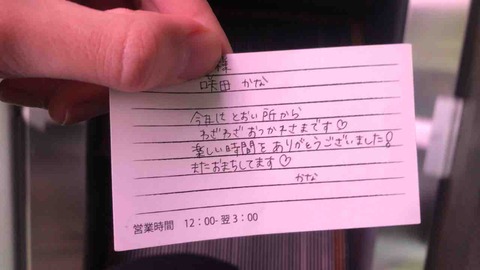 様
味田 かな
今日は とおい所から
わざわざおつかれさまです♡
楽しい時間をありがとうございました!
またおまちしてます♡
かな
営業時間 12:00-翌3:00